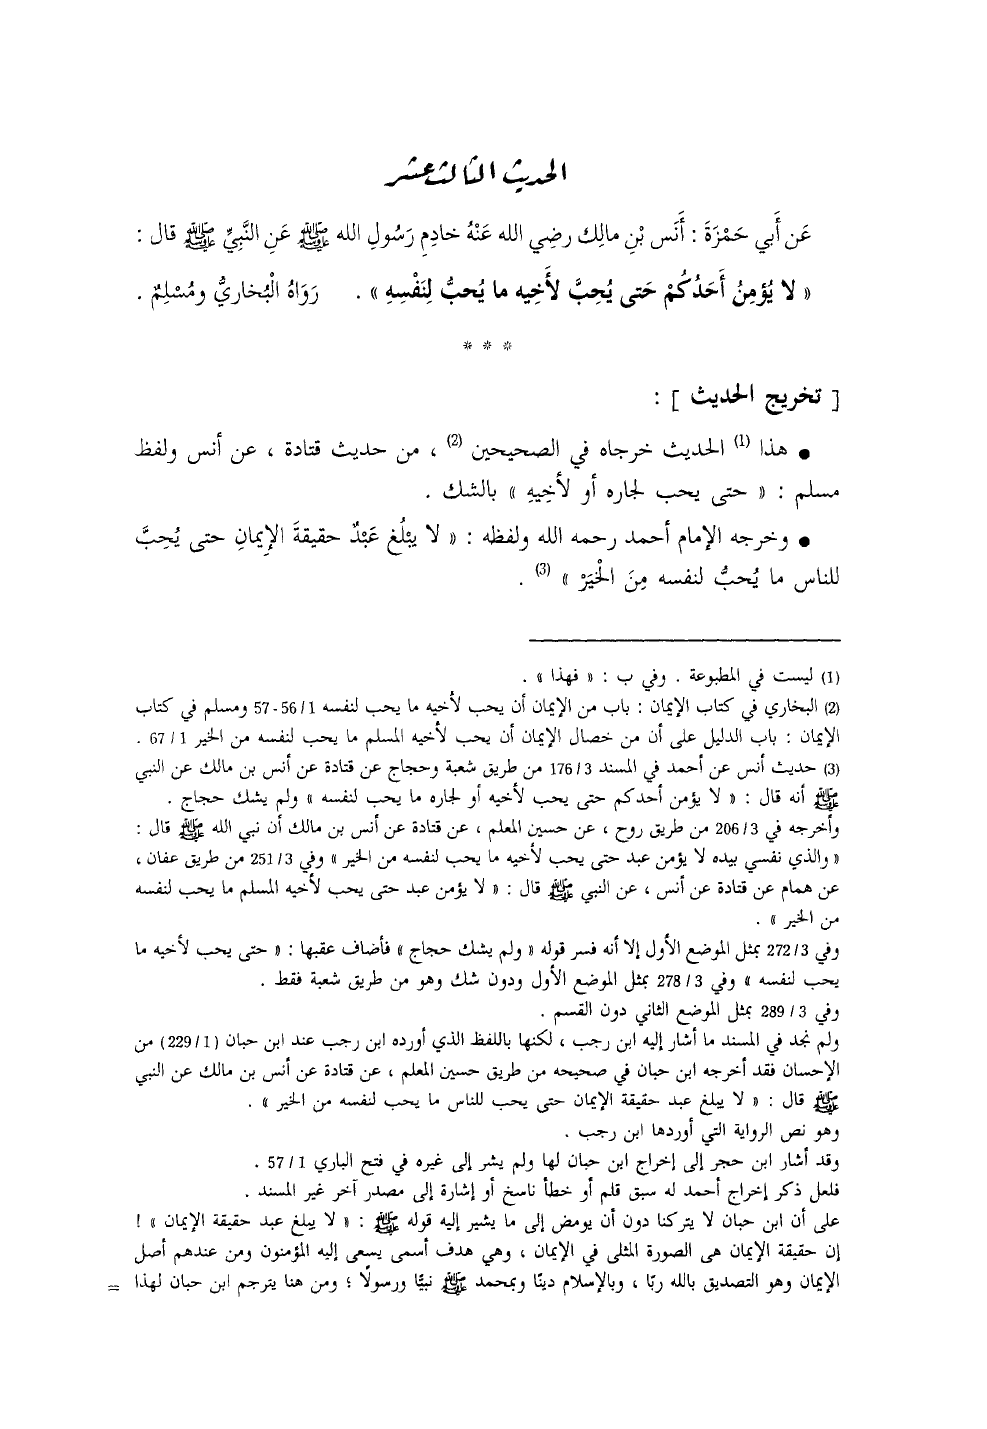 الحديث الثالث عشر
عَن أَبي حَمْزَةَ : أَنَس بْنِ مالِك رضِي الله عَنْهُ خادِمِ رَسُولِ الله ﷺ عَنِ النَّبِيِّ ﷺ قال :
« لا يُؤمِنُ أَحَدُكُمْ حَتى يُحِبَّ لأَخِيه ما يُحبُّ لِنَفْسِهِ » . رَوَاهُ الْبُخاريُّ ومُسْلِمٌ .
* * *
[ تخريج الحديث ] :
● هذا (1) الحديث خرجاه في الصحيحين (2) ، من حديث قتادة ، عن أنس ولفظ
مسلم : « حتى يحب لجاره أو لأخِيهِ » بالشك .
● وخرجه الإمام أحمد رحمه الله ولفظه : « لا يبْلُغ عَبْدٌ حقيقةَ الإِيمانِ حتى يُحِبَّ
للناس ما يُحبُّ لنفسه مِنَ الْخَيَرْ » (3) .
(1) ليست في المطبوعة . وفي ب : « فهذا » .
(2) البخاري في كتاب الإيمان : باب من الإيمان أن يحب لأخيه ما يحب لنفسه 1/ 56 - 57 ومسلم في كتاب
الإيمان : باب الدليل على أن من خصال الإيمان أن يحب لأخيه المسلم ما يحب لنفسه من الخير 1 / 67 .
(3) حديث أنس عن أحمد في المسند 3 / 176 من طريق شعبة وحجاج عن قتادة عن أنس بن مالك عن النبي
ﷺ أنه قال : « لا يؤمن أحدكم حتى يحب لأخيه أو لجاره ما يحب لنفسه » ولم يشك حجاج .
وأخرجه في 3 / 206 من طريق روح ، عن حسين المعلم ، عن قتادة عن أنس بن مالك أن نبي الله ﷺ قال :
« والذي نفسي بيده لا يؤمن عبد حتى يحب لأخيه ما يحب لنفسه من الخير » وفي 3 / 251 من طريق عفان ،
عن همام عن قتادة عن أنس ، عن النبي ﷺ قال : « لا يؤمن عبد حتى يحب لأخيه المسلم ما يحب لنفسه
من الخير » .
وفي 3 / 272 بمثل الموضع الأول إلا أنه فسر قوله « ولم يشك حجاج » فأضاف عقبها : « حتى يحب لأخيه ما
يحب لنفسه » وفي 3 / 278 بمثل الموضع الأول ودون شك وهو من طريق شعبة فقط .
وفي 3 / 289 بمثل الموضع الثاني دون القسم .
ولم نجد في المسند ما أشار إليه ابن رجب ، لكنها باللفظ الذي أورده ابن رجب عند ابن حبان ( 1 / 229 ) من
الإحسان فقد أخرجه ابن حبان في صحيحه من طريق حسين المعلم ، عن قتادة عن أنس بن مالك عن النبي
ﷺ قال : « لا يبلغ عبد حقيقة الإيمان حتى يحب للناس ما يحب لنفسه من الخير » .
وهو نص الرواية التي أوردها ابن رجب .
وقد أشار ابن حجر إلى إخراج ابن حبان لها ولم يشر إلى غيره في فتح الباري 1 / 57 .
فلعل ذكر إخراج أحمد له سبق قلم أو خطأ ناسخ أو إشارة إلى مصدر آخر غير المسند .
على أن ابن حبان لا يتركنا دون أن يومض إلى ما يشير إليه قوله ﷺ : « لا يبلغ عبد حقيقة الإيمان » !
إن حقيقة الإيمان هى الصورة المثلى في الإيمان ، وهي هدف أسمى يسعى إليه المؤمنون ومن عندهم أصل
الإيمان وهو التصديق بالله ربّا ، وبالإسلام دينًا وبمحمد ﷺ نبيًّا ورسولًا ؛ ومن هنا يترجم ابن حبان لهذا =